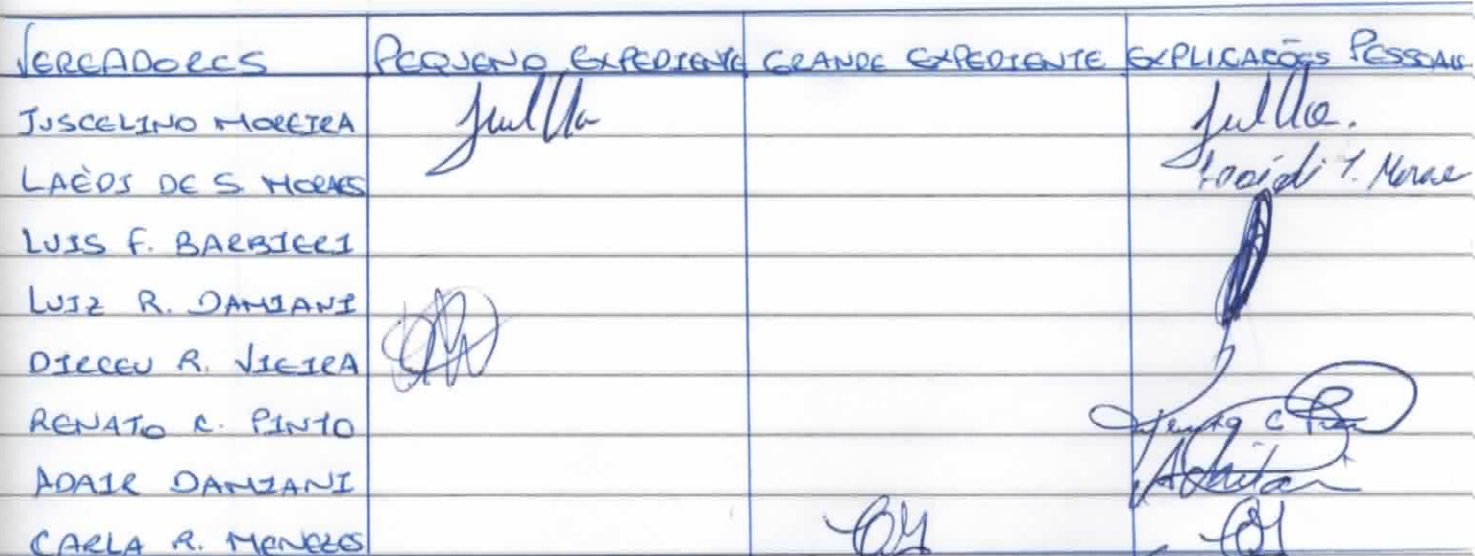 VEREADORES PEQUENO EXPEDIENTE GRANDE EXPEDIENTE EXPLICAÇÕES PESSOAIS
JUSCELINO MOREIRA
LAÉDI DE S. MORAES
LUIS F. BARBIERI
LUIZ R. DAMIANI
DIRCEU R. VIEIRA
RENATO C. PINTO
ADAIR DAMIANI
CARLA R. MENEZES